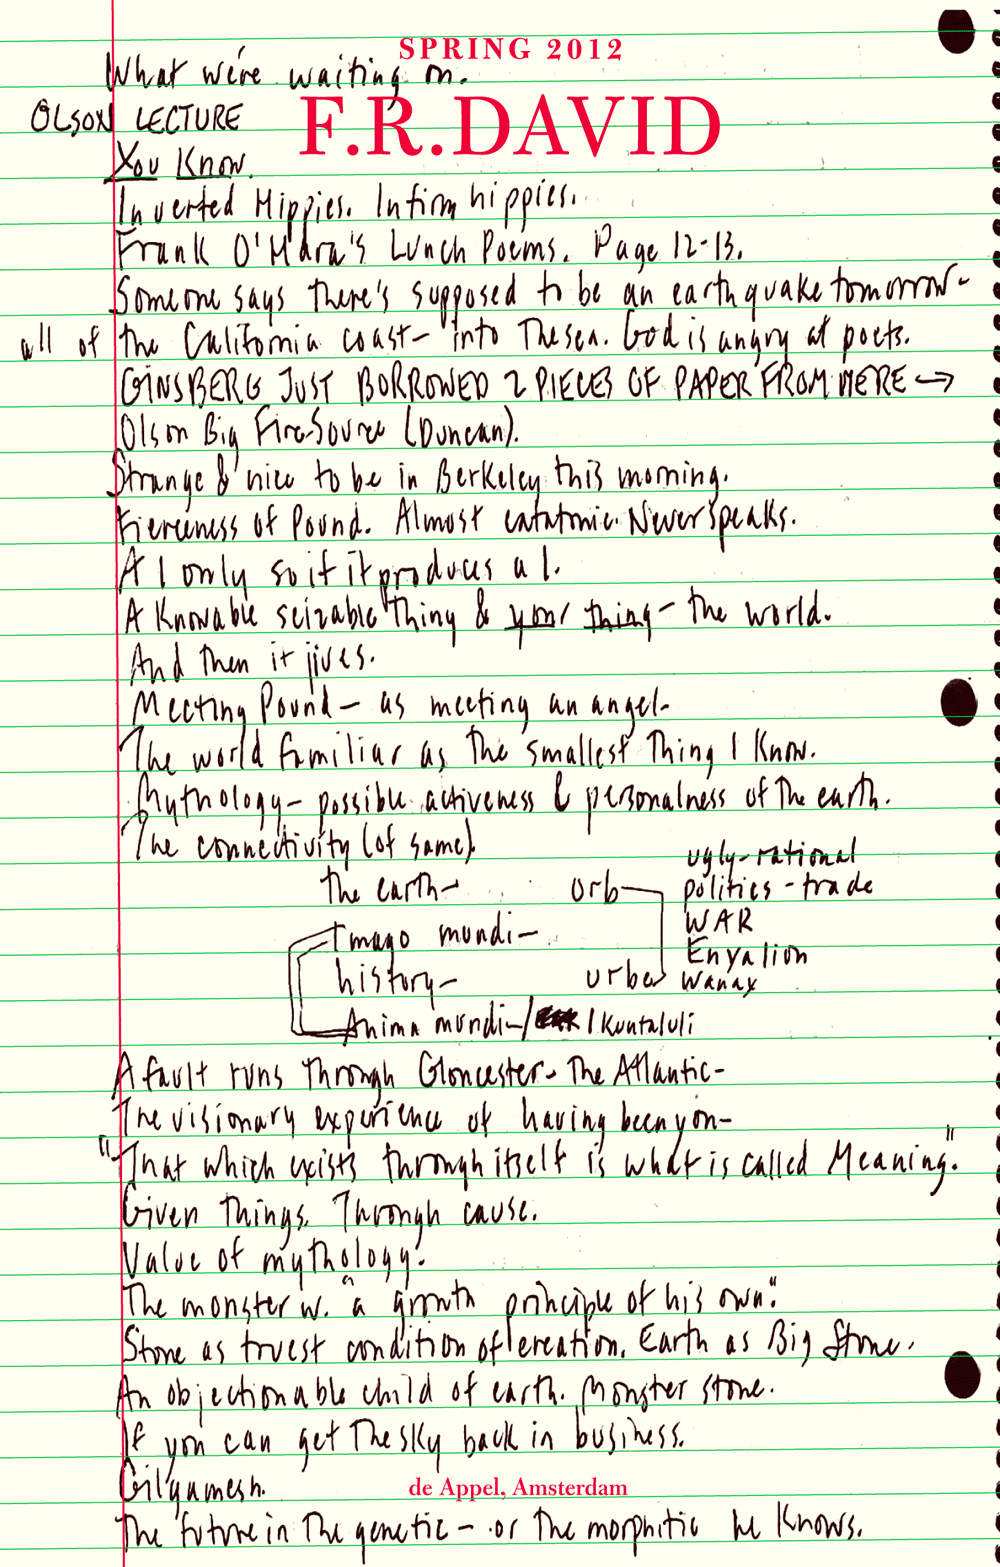 SPRING 2012
What we're waiting on.
F.R.DAVID
OLSON LECTURE
You Know.
Inverted Hippies. Infirm hippies.
Frank O'Hara's Lunch Poems. Page 12-13.
Someone says there's supposed to be an earthquake tomorrow-
all of the California coast- into The sea. God is angry at poets.
GINSBERG JUST BORROWED 2 PIECES OF PAPER FROM HERE →
Olson Big Fire Source (Duncan).
Strange & nice to be in Berkeley this morning.
Fierceness of Pound. Almost catatonic. Never speaks.
A 1 only so if it produces a 1.
A Knowable seizable Thing & your thing - the world.
And Then it jives.
Meeting Pound - as meeting an angel-
The world familiar as The smallest Thing I Know.
Mythology - possible activeness & personalness of The earth.
The connectivity (of same).
the earth- orb
ugly-rational
politics - trade
Imago mundi-
WAR
Enyalion
history- urbe wanax
Anima mundi-/ / Kuntaluli
A fault runs Through Gloucester - The Atlantic-
The visionary experience of having been you-
"That which exists through itself is what is called Meaning."
Given Things. Through cause.
Value of mythology.
The monster w. "a growth principle of his own."
Stone as truest condition of creation. Earth as Big Stone.
An objectionable child of earth. Monster stone.
If you can get The sky back in business.
Gilgamesh.
de Appel, Amsterdam
The future in The genetic - or The morphitic he Knows.